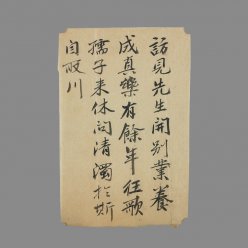 訪見先生開別業養
成真藥有餘年狂歌
孺子來休問清濁於斯
自取川